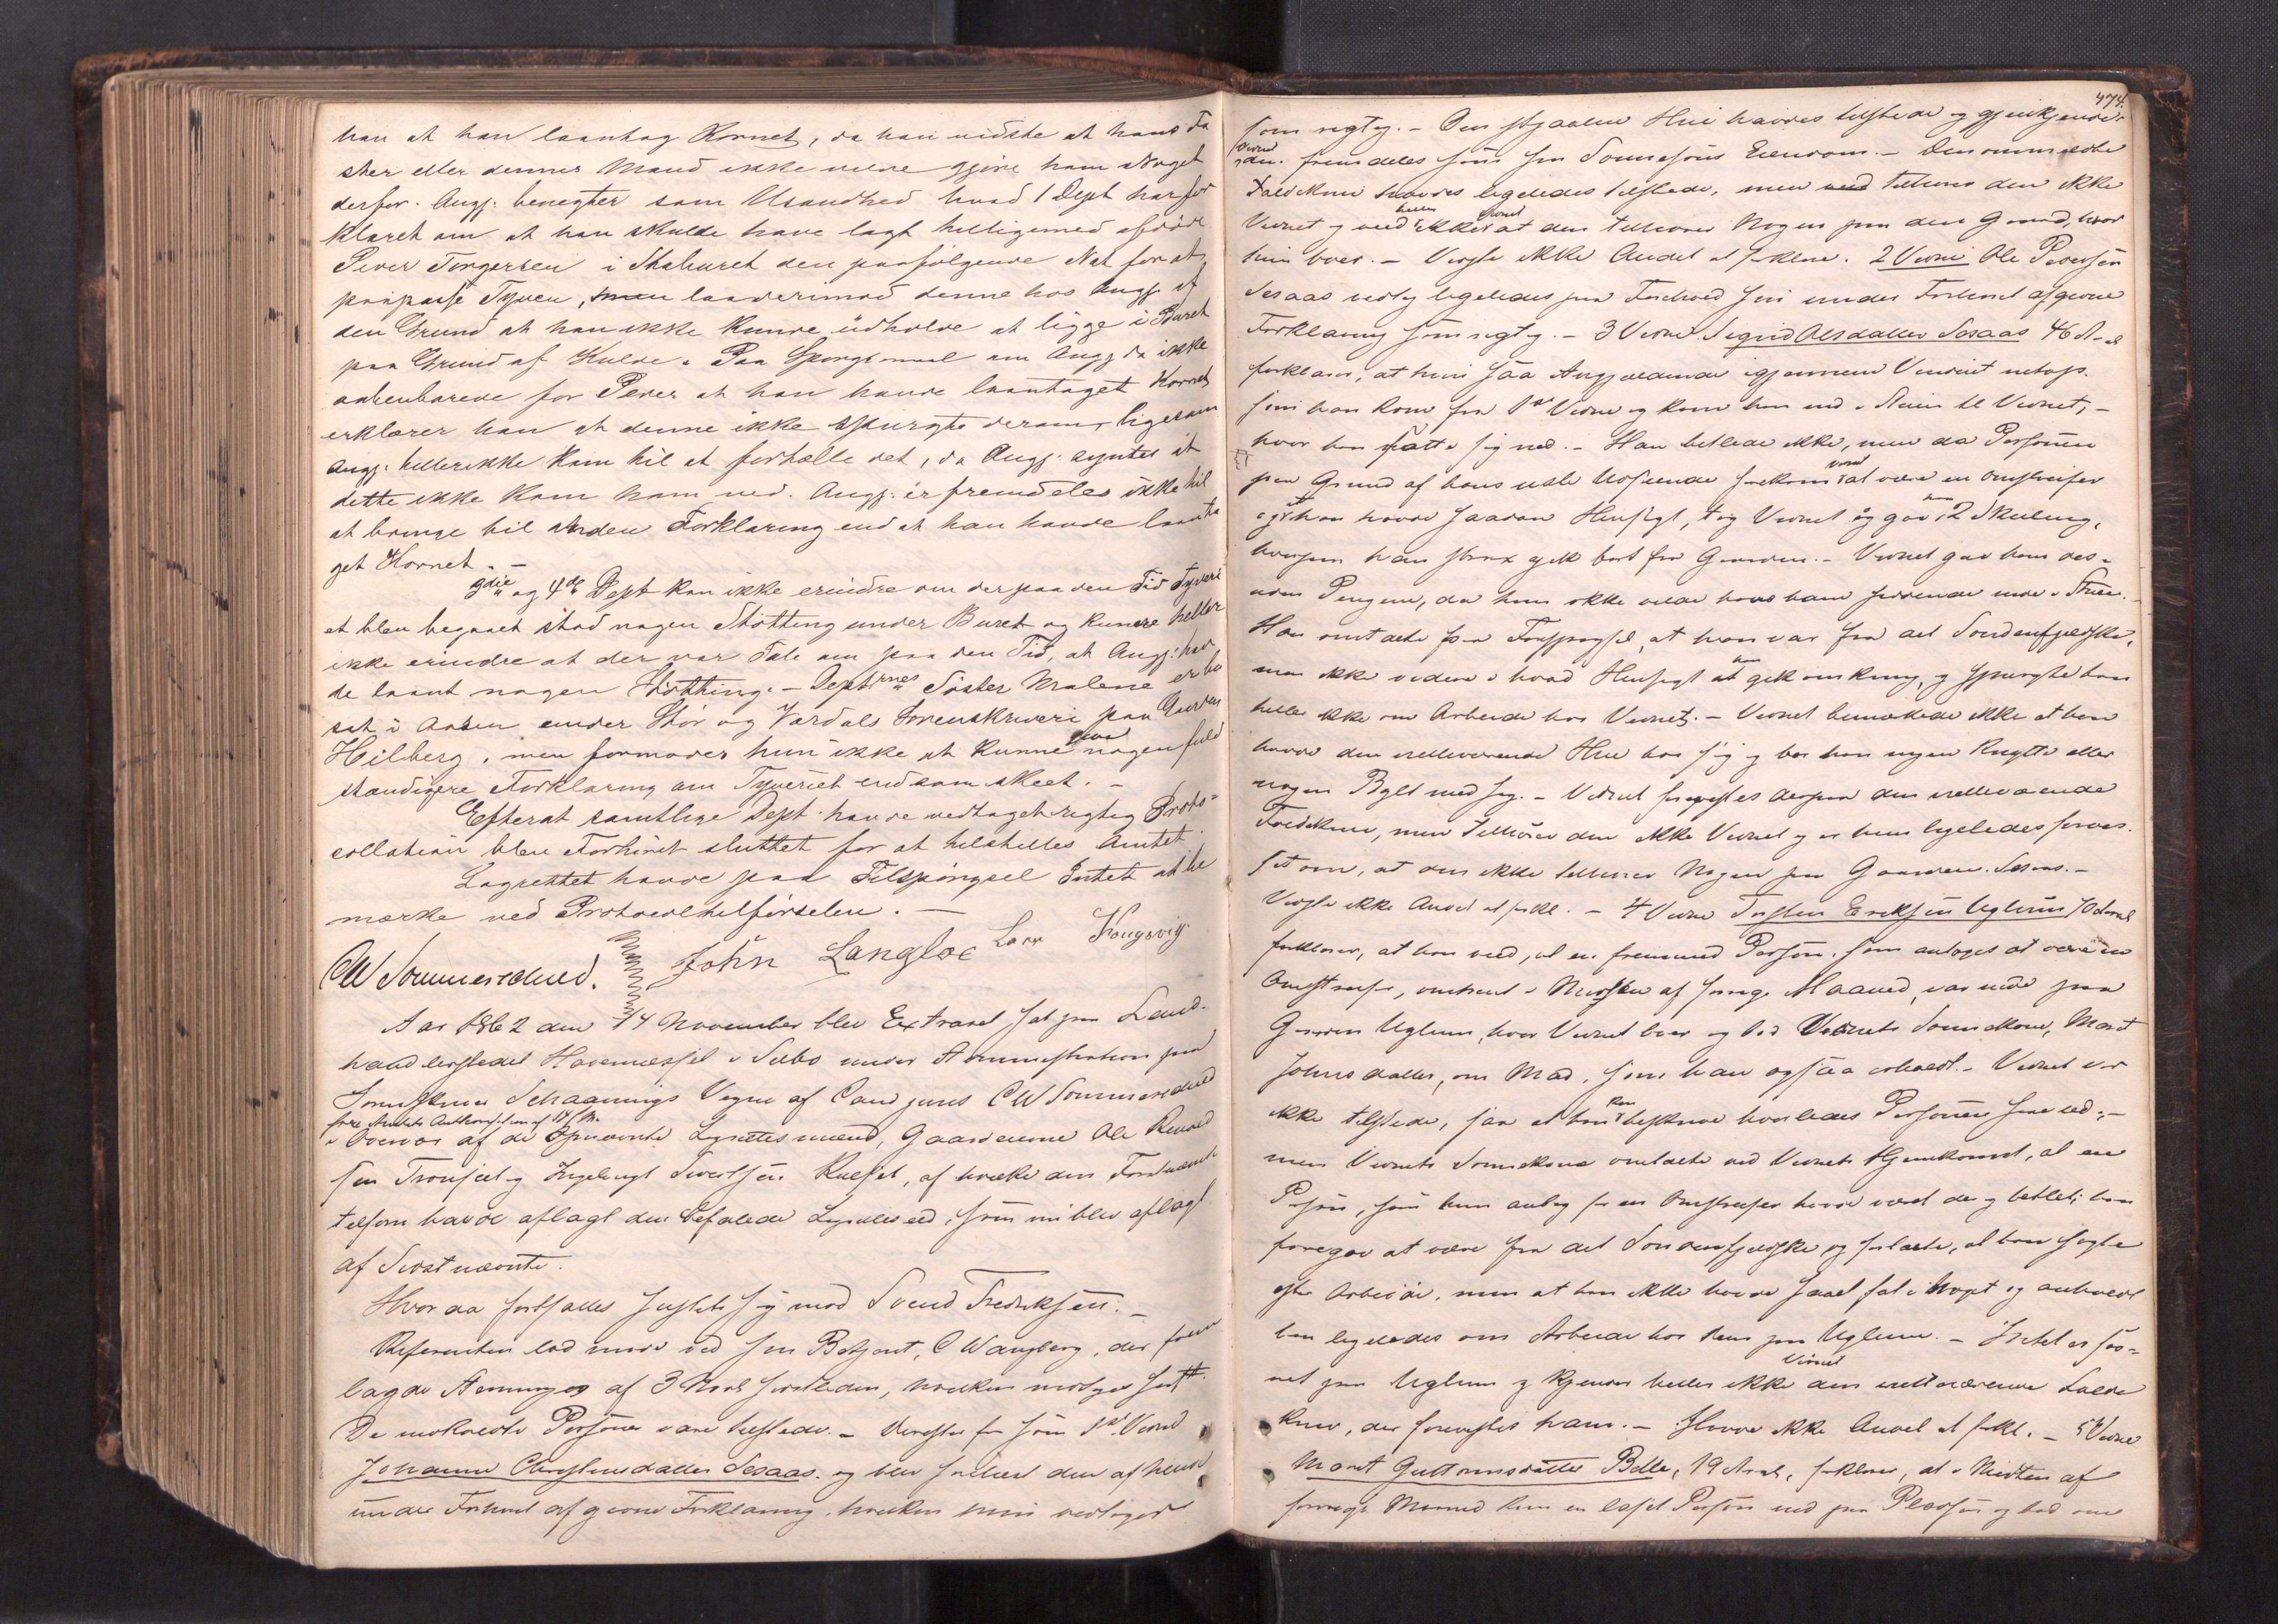 han at han laantog Kornet, da han vidste at hans Fa
ster eller dennes Mand ikke vilde gjøre ham Noget
derfor. Angj. benegter som Usandhed hvad 1 Dept har for
klaret om at han skulde have lagt tilligemed afdøde
Peder Torgersen i Staburet den paafølgende Nat for at
paapasse Tyven, laa derimod denne hos Angj. af
den Grund at han ikke kunde udholde at ligge i Buret
paa Grund af Kulde. Paa Spørgsmaal om Angj. da ikke
aabenbarede for Peder at han havde laantaget Kornet
erklærer han at denne ikke spurgte derom, ligesom
Angj. heller ikke kom til at fortælle det, da Angj. syntes at
dette ikke kom ham ved. Angj. er fremdeles ikke til
at bringe til anden Forklaring end at han havde laanta
get Kornet. —
3die og 4de Dept kan ikke erindre om der paa den Tid Tyveri
et blev begaaet stod nogen Støtting under Buret og kunde heller
ikke erindre at der var Tale om paa den Tid, at Angj. hav
de laant nogen Støtting. — Deptrnes Søster Malene er bo
sat i Aasen under Stør og Værdals Sorenskriveri paa Gaarden
Hilberg, men formoder hun ikke at kunne give nogen fuld
stændigere Forklaring om Tyveriet end som skeet. —
Efterat samtlige Dept. havde vedtaget rigtig Proto=
collation blev Forhøret sluttet for at tilstilles Amtet.
Lagrettet havde paa Tilspørgsel Intet at be
mærke ved Protocoltilførselen. —
CW Sommerschield. John Langloe Lars Kongsvig
Aar 1862 den 14 November blev Extraret sat paa Land-
handlerstedet Havernæsset i Selbo under Administration paa
Sorenskriver Schaannings Vegne af Cand juris CW Sommerschield
ifølge Amtets Authorisation af 14/
i Overvær af de opnævnte Lagrettesmænd, Gaardeierne Ole
sen og Ingebrigt Sivertsen, af hvilke den Førstnævnte
tilforn havde aflagt den befalede Lagrettesed, som nu blev aflagt
af Sidstnævnte.
Hvor da fortsattes Justitssag mod Svend Fredriksen. —
Referenten lod møde ved sin Betjent, C Wangberg, der frem
lagde af 3 sidstleden, hvilken modtoges
De indkaldte Personer vare tilstede. — Derefter som 1st Vidne
Johanne Christensdatter Sesaas, og blev forelæst den af hende
under Forhøret afgivne Forklaring, hvilken hun vedtoges
474.
som rigtig. — Den stjaalne Hue havdes tilstede og gjenkjendes
Vidnet den fremdeles som sin Sønnesøns Eiendom. — Den ommeldte
Foldekniv havdes ligeledes tilstede, men tilhører den ikke
Vidnet og veed heller ikke Vidnet at den tilhører Nogen paa den Gaard, hvor
hun boer. — Vidste ikke Andet at forklare. 2 Vidne Ole Pedersen
Sesaas vedtog ligeledes paa Forehold sin under Forhøret afgivne
Forklaring som rigtig. — 3 Vidne Sigrid Olsdatter Sesaas 46 Aar
forklarer, at hun saa Angjældende igjennem Vinduet netop
som han kom fra 1st Vidne og kom han ind i Stuen til Vidnet, —
hvor han satte sig ned. — Han betlede ikke, men da Personen
paa Grund af hans usle Udseende forekom Vidnet at være en Omstreifer
og at han havde saadan Hensigt, tog Vidnet og gav ham 2 Skilling,
hvorpaa han strax gik bort fra Gaarden. — Vidnet gav ham des-
uden Pengene, da hun ikke vilde have ham siddende inde i Stuen. —
Han omtalte paa Forespørgsel, at han var fra det Søndenfjeldske,
men ikke videre i hvad Hensigt at han gik omkring, og spurgte han
heller ikke om Arbeide hos Vidnet. — Vidnet bemærkede ikke at han
havde den vedkommende Hue hos sig og bar han ingen Knytte eller
nogen Bylt med sig. — Vidnet forevistes derpaa den vedkommende
Foldekniv, men tilhører den ikke Vidnet og er hun ligeledes forvis-
set om, at den ikke tilhører Nogen paa Gaarden Sesaas. —
Vidste ikke Andet at forkl. — 4 Vidne Torsten Eriksen Uglum 70 Aar
forklarer, at han veed, at en fremmed Person, som antoges at være en
Omstreifer, omtrent i Midten af forrige Maaned, var inde paa
Gaarden Uglum, hvor Vidnet boer og bad Vidnets Sønnekone, Marit
Johnsdatter, om Mad, som han ogsaa erholdt. — Vidnet var
ikke tilstede, saa at han kan beskrive hvorledes Personen saae ud, —
men Vidnets Sønnekone omtalte ved Vidnets Hjemkomst, at en
Person, som hun antog for en Omstreifer havde været der og betlet; han
foregav at være fra det Søndenfjeldske og fortalte, at han søgte
efter Arbeide, men at han ikke havde faaet fat i Noget og anholdt
han ligeledes om Arbeide hos dem paa Uglum. — Intet er sav-
net paa Uglum og kjender Vidnet heller ikke den vedkommende Folde
kniv, der forevistes ham. — Havde ikke Andet at forkl. — 5 Vidne
Marit Guttormsdatter Balle, 19 Aar, forklarer, at i Midten af
forrige Maaned kom en Person ind paa Pladsen og bad om